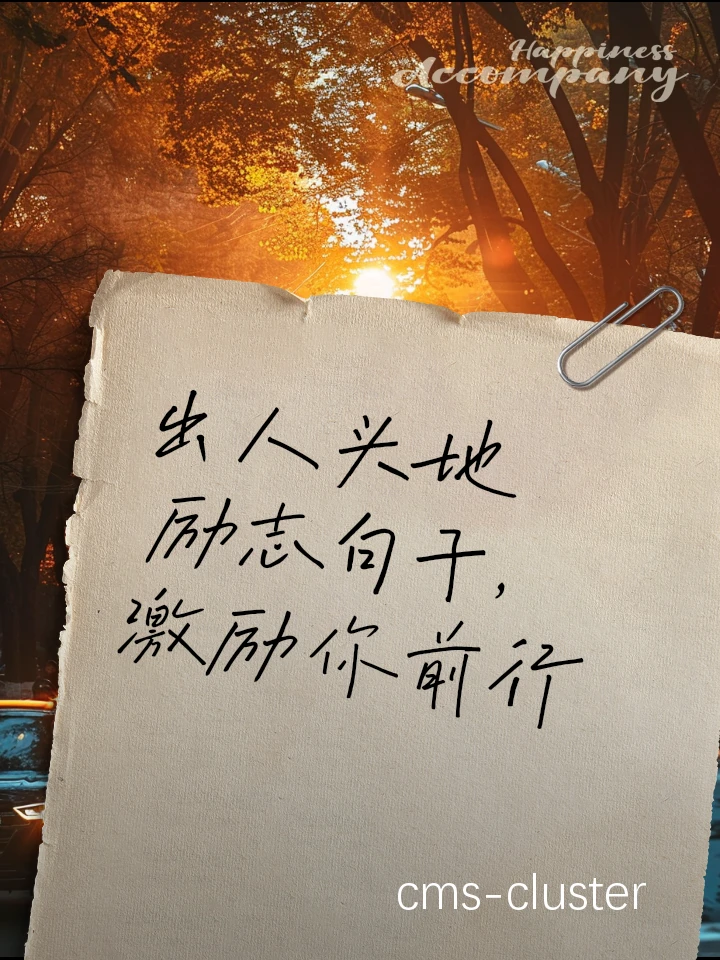 Happiness
Accompany
出人头地
励志句子，
激励你前行
cms-cluster